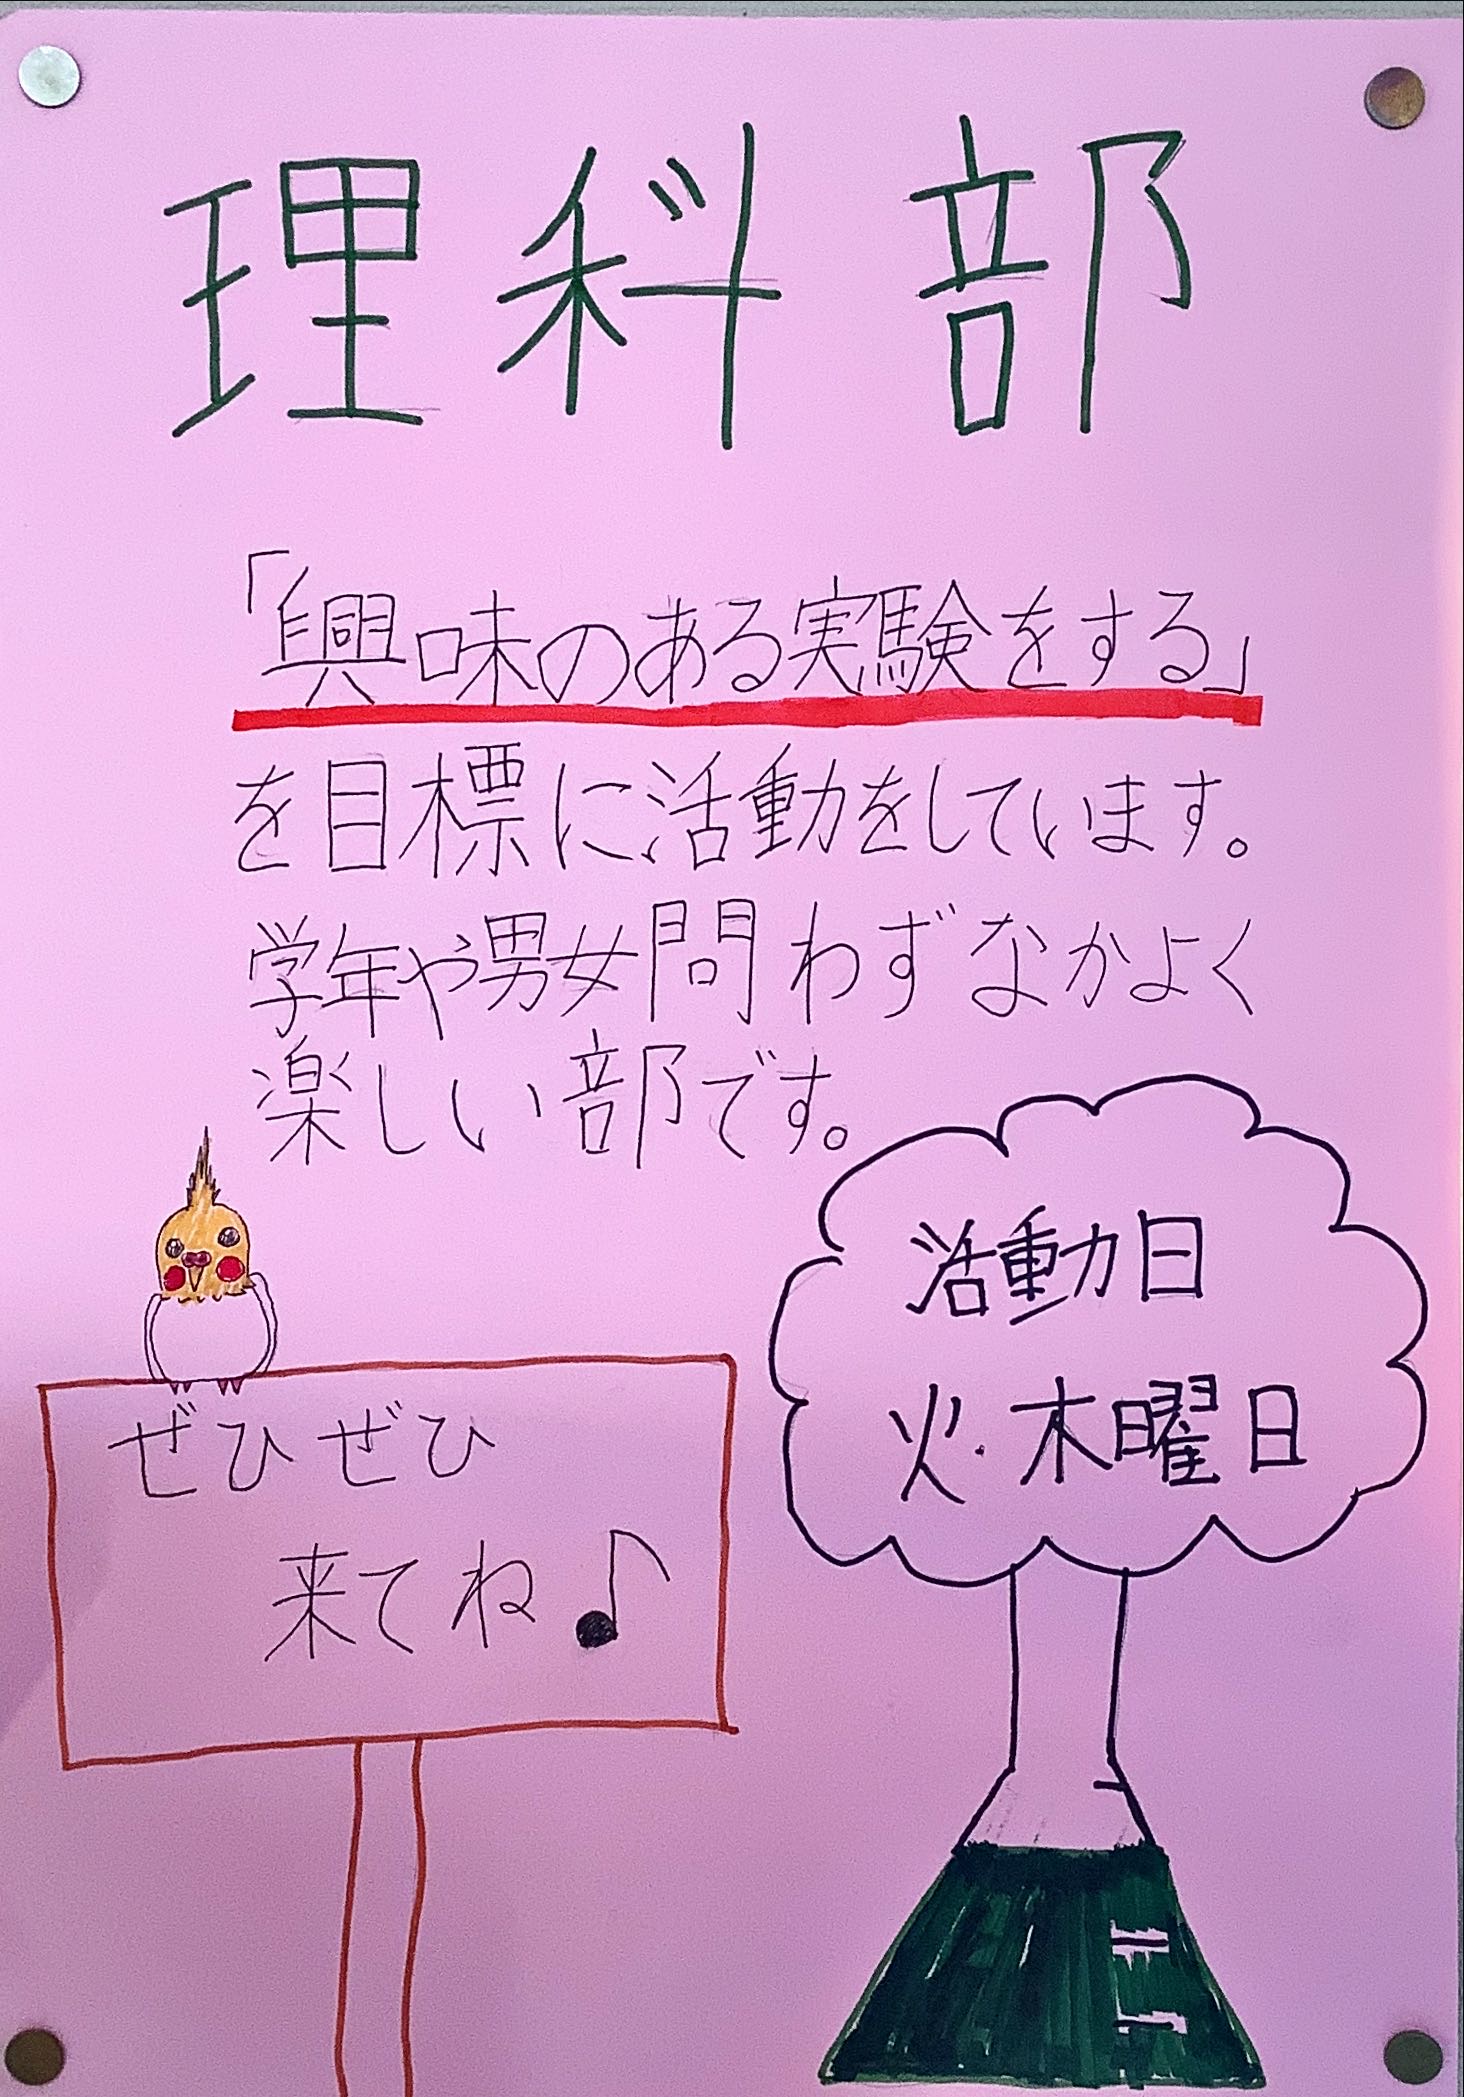 理科部
「興味のある実験をする」
を目標に活動をしています。
学年や男女問わずなかよく
楽しい部です。
活動日
火・木曜日
ぜひぜひ
来てね♪